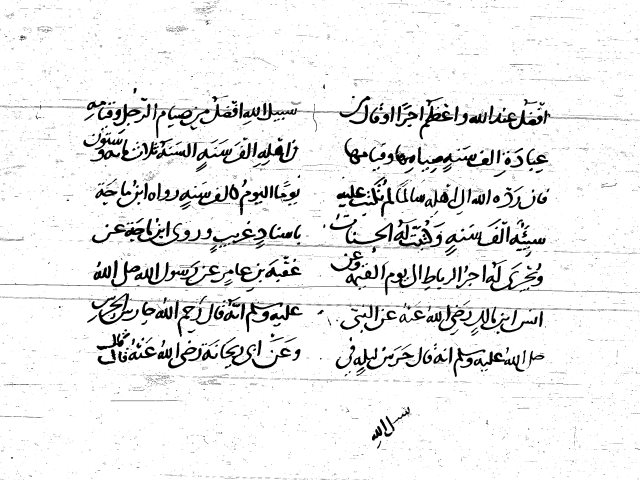 افضل عند الله واعظم اجرًا او قال من
عبادة الف سنه صيامها وقيامها
فان ردّه الله الى اهله سالمًا لم تكتب عليه
سيّئه الف سنه وكتبت له الحسنات
ويجرى له اجر الرباط الى يوم القيمة وعن
انس ابن مالك رضي الله عنه عن النبى
صلى الله عليه وسلم انه قال حرس ليله فى
سبيل الله
سبيل الله افضل من صيام الرجل وقيامه
فى اهله الف سنه السنة ثلاث مائه وستون
يومًا اليوم كالف سنه رواه ابن ماجة
باسناد غريب وروى ابن ماجة عن
عقبة بن عامر عن رسول الله صلى الله
عليه وسلم انّه قال رحم الله حارس الحرس
وعن ابى ريحانة رضى الله عنه قال